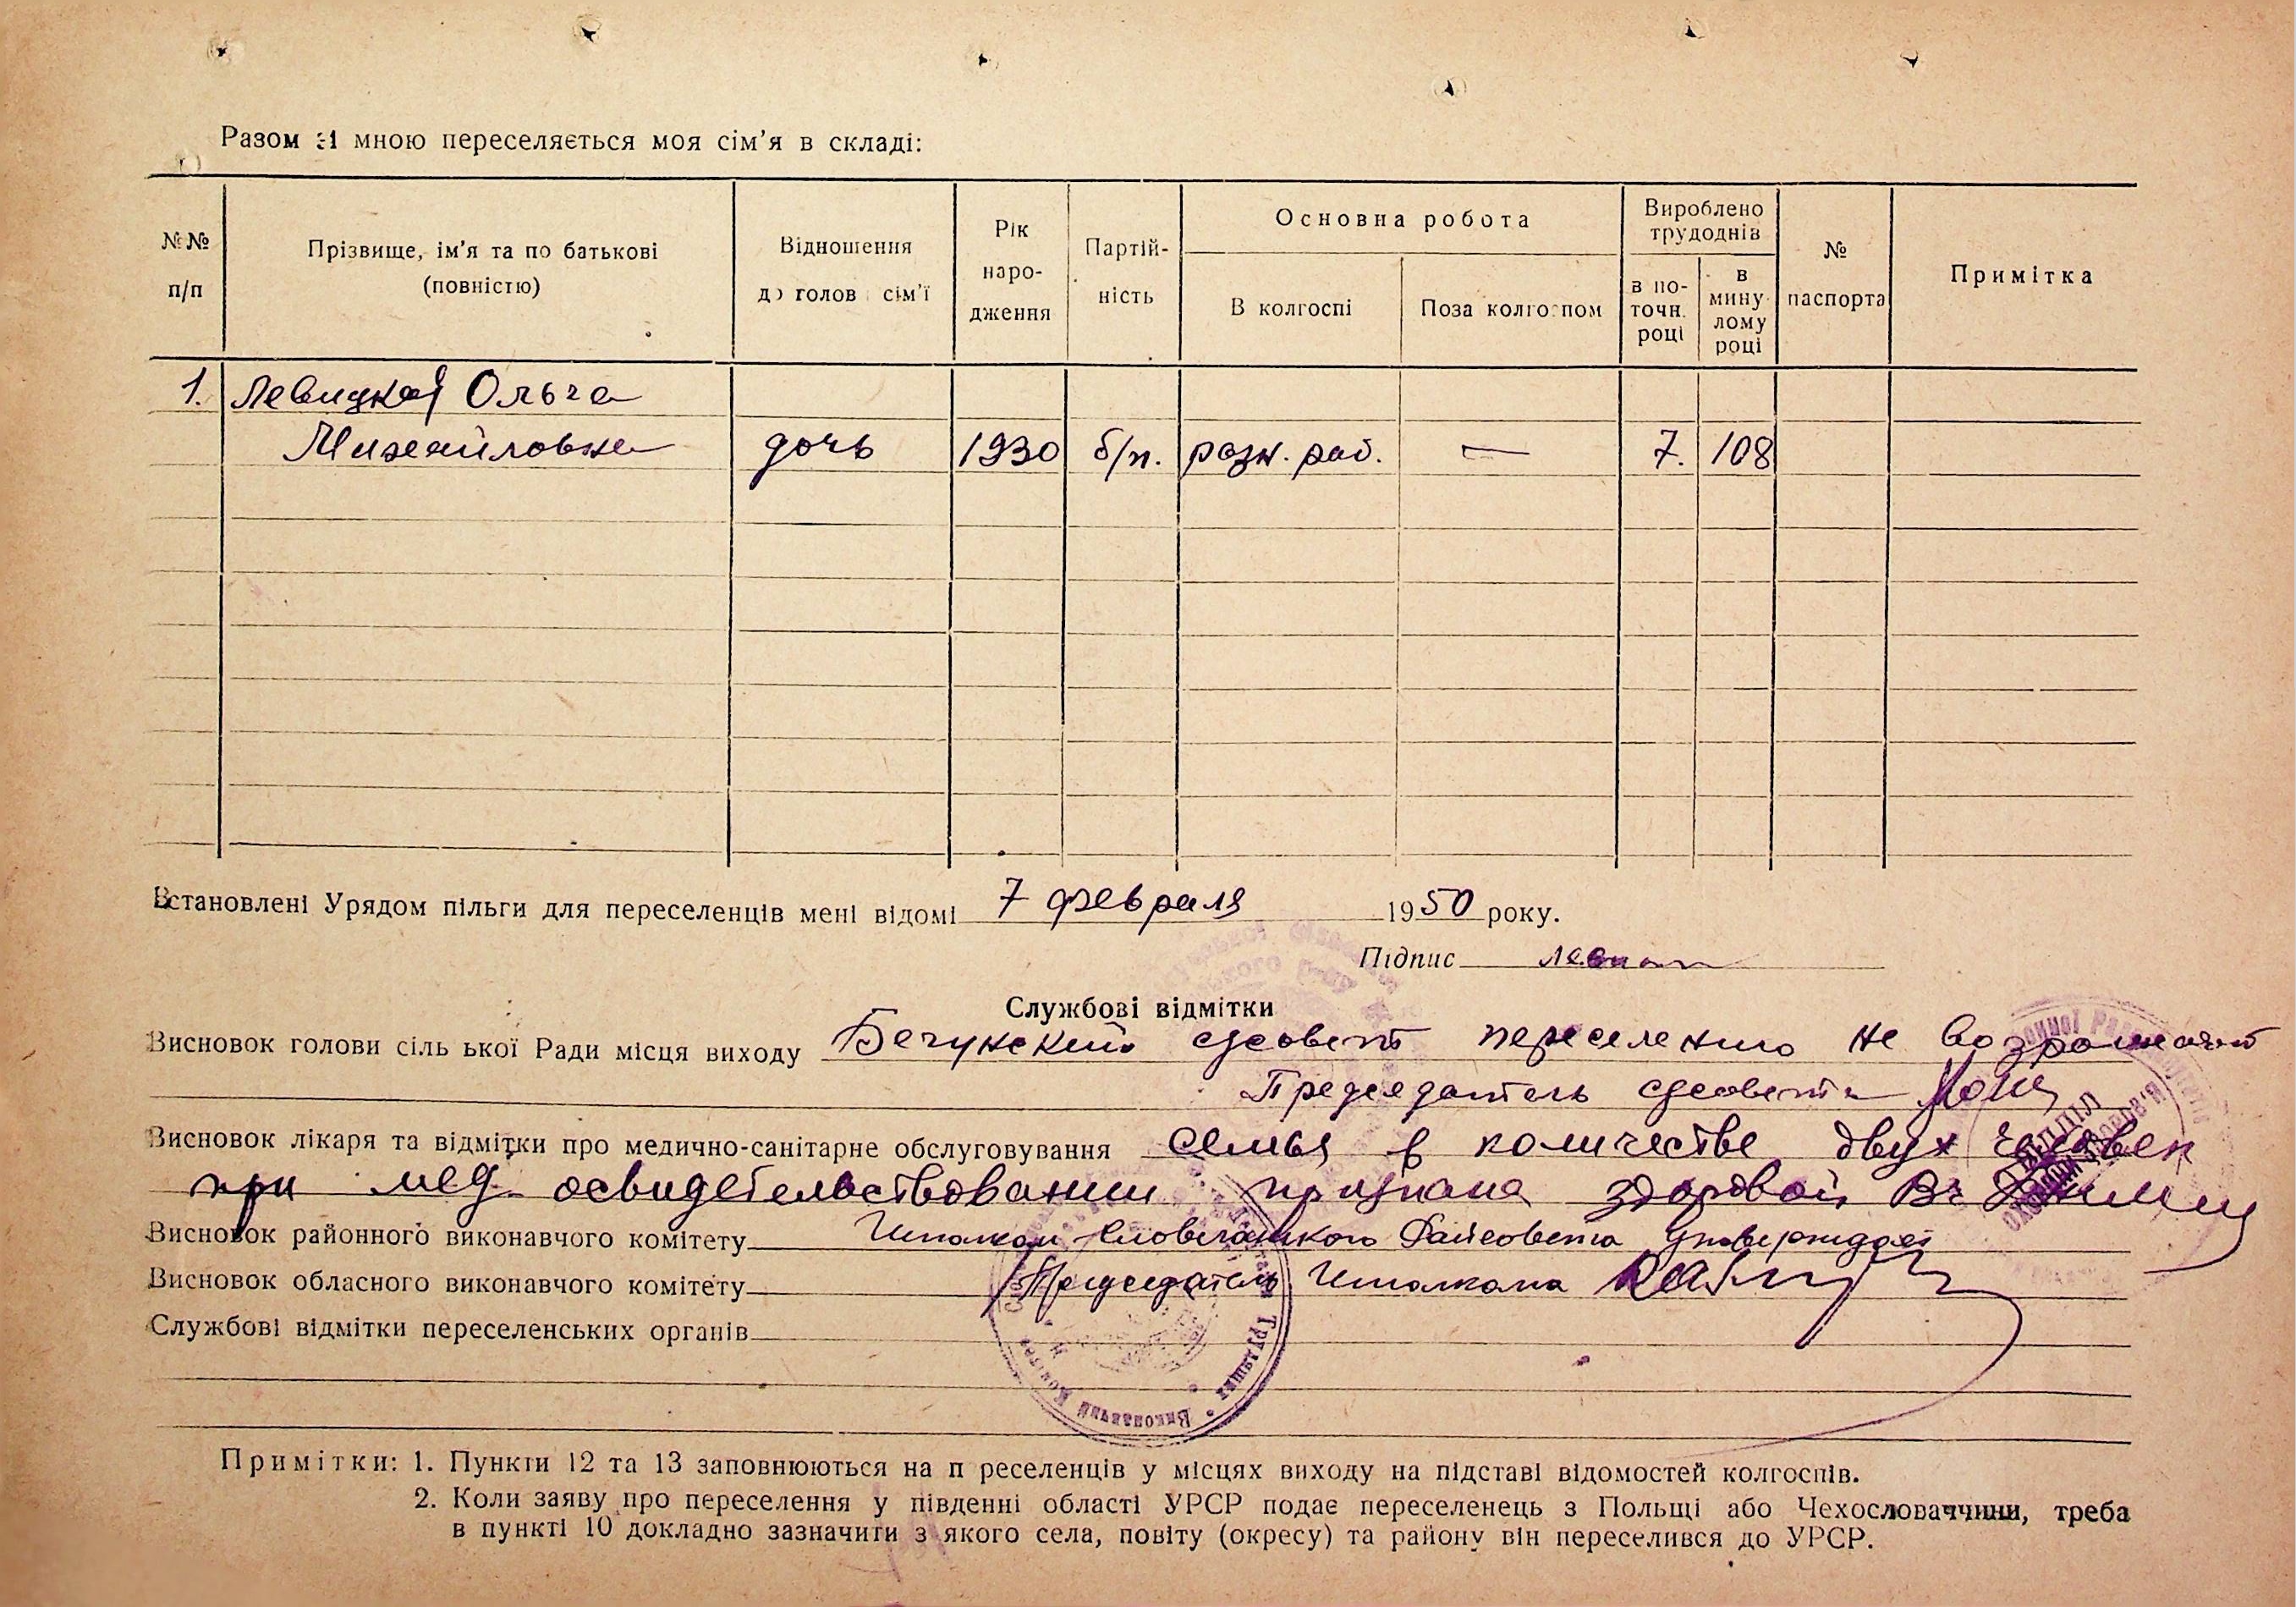 Разом зі мною переселяється моя сім'я в складі:
№№ п/п
Прізвище, ім'я та по батькові (повністю)
Відношення до голов сім'ї
Рік народження
Партійність
Основна робота
В колгоспі
Поза колгоспом
Вироблено трудоднів
в поточн. році
в минулому році
№ паспорта
Примітка
1. Левицкая Ольга
Михайловна дочь 1930 б/п. разн. раб. — 7. 108
Встановлені Урядом пільги для переселенців мені відомі 7 февраля 1950 року.
Підпис
Службові відмітки
Висновок голови сільської Ради місця виходу Бегунский с/совет переселению не возрожает
Председатель с/совета
Висновок лікаря та відмітки про медично-санітарне обслуговування семья в количестве двух человек
при мед. освидетельствовании признана здоровой Вр
Висновок районного виконавчого комітету Исполком Словечанского Райсовета утверждает
Висновок обласного виконавчого комітету Председатель Исполкома
Службові відмітки переселенських органів
Трудящих • Виконавчий Комітет
ВІДДІЛ
ОХОРОНИ ЗДОРОВ'Я
Примітки: 1. Пункти 12 та 13 заповнюються на п реселенців у місцях виходу на підставі відомостей колгоспів.
2. Коли заяву про переселення у південні області УРСР подає переселенець з Польщі або Чехословаччини, треба
в пункті 10 докладно зазначити з якого села, повіту (окресу) та району він переселився до УРСР.